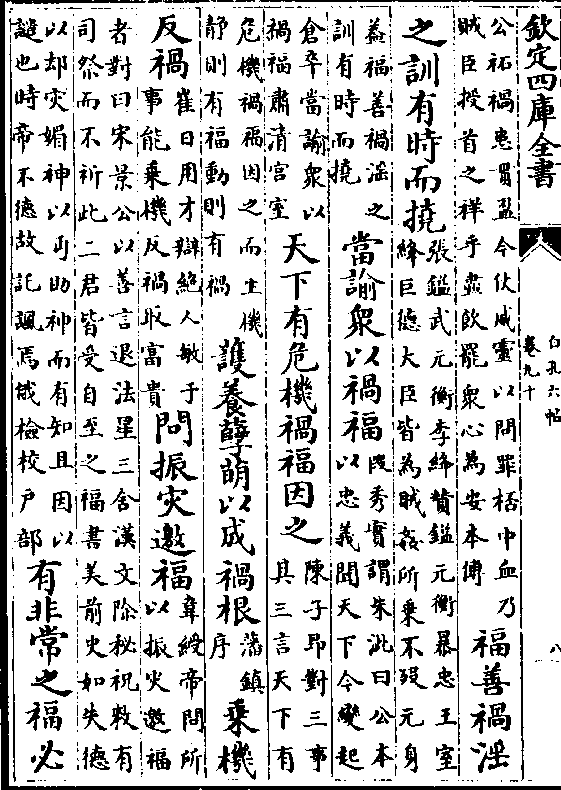 欽定四庫全書
白孔六帖
卷九十
八
公祏禍惡貫盈今仗威靈以問罪桮中血乃
賊臣授首之祥乎盡飲罷衆心為安本傳
福善禍淫
之訓有時而撓
張鎰武元衡李絳贊鎰元衡暴忠王室
絳巨德大臣皆為賊姦所乗不歿元身
葢福善禍淫之
訓有時而撓
當諭衆以禍福
段秀實謂朱泚曰公本
以忠義聞天下今變起
倉卒當諭衆以
禍福肅清宫室
天下有危機禍福因之
陳子昂對三事
其三言天下有
危機禍福因之而生機
静則有福動則有禍
護養孽萌以成禍根
藩鎮
序
乗機
反禍
崔日用才辯絶人敏于
事能乗機反禍取富貴
問振灾邀福
韋綬帝問所
以振灾邀福
者對曰宋景公以善言退法星三舍漢文除秘祝敕有
司祭而不祈此二君皆受自至之福書美前史如失德
以却灾媚神以丐助神而有知且因以
譴也時帝不德故託諷焉俄檢校户部
有非常之福必